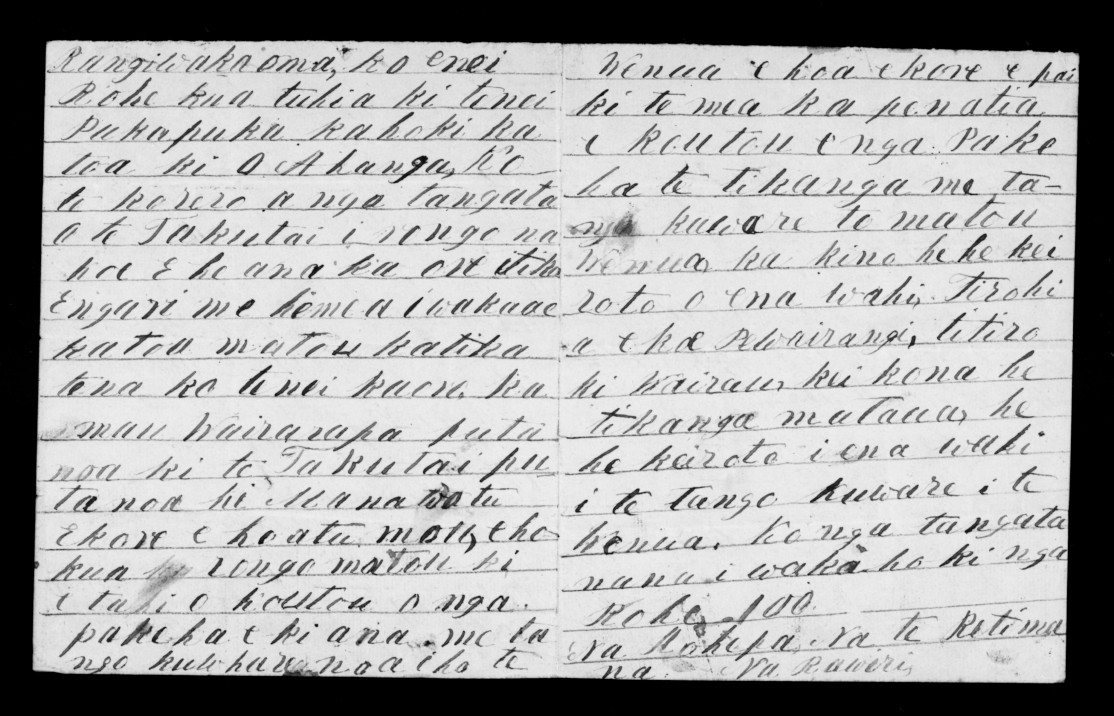 Rangiwakaoma, ko enei
Rohe kua tuhia ki tenei
Pukapuka kahoki ka
toa ki O Ahanga, Ko
te korero a nga tangata
O te Takutai i rongo na
hoe E he ana ka ore itika
Engari me hemea i wakaae
katou matou katika
tena ko tenei kaore, ka
mau Wairarapa puta
noa ki te Takutai pu
ta noa ki Manawatu
Ekore e hoatu mou, eho
kua rongo matou ki
e tahi o koutou o nga
pakeha e ki ana me ta
ngo kuwhare noa iho te
Wenua e hoa ekore e pai
ki te mea ka penatia
e Koutou e nga Pake
ha te tikanga me ta-
ngo kuware to matou
Wenua, ka kino hehe kei
roto o ena wahi, Tirohi
a e koe Awairangi, titiro
ki Wairau, kei kona he
tikanga mataua, he
he keiroto i ena wahi
i te tango kuware i te
Wenua. Ko nga tangata
nana i waka ho ki nga
Rohe 100
Na Te Retima
na. Na Rawiri,